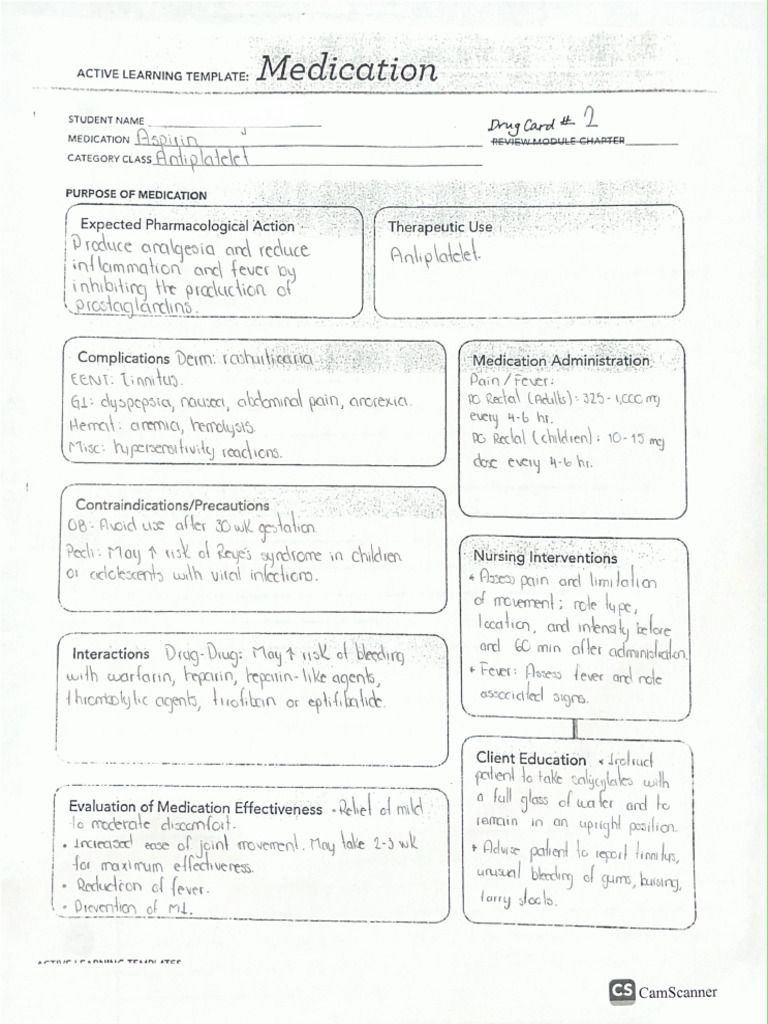 ACTIVE LEARNING TEMPLATE: Medication
STUDENT NAME
MEDICATION Aspirin
CATEGORY CLASS Antiplatelet
Drug Card # 2
REVIEW MODULE CHAPTER
PURPOSE OF MEDICATION
Expected Pharmacological Action
Produce analgesia and reduce
inflammation and fever by
inhibiting the production of
prostaglandins.
Therapeutic Use
Antiplatelet.
Complications Derm: rash, urticaria
EENT: Tinnitus.
GI: dyspepsia, nausea, abdominal pain, anorexia.
Hemat: anemia, hemolysis.
Misc: hypersensitivity reactions.
Medication Administration
Pain / Fever:
PO Rectal (Adults): 325-1,000 mg
every 4-6 hr.
PO Rectal (children): 10-15 mg
dose every 4-6 hr.
Contraindications/Precautions
OB: Avoid use after 30 wk gestation
Pedi: May ↑ risk of Reye's syndrome in children
or adolescents with viral infections.
Nursing Interventions
• Assess pain and limitation
of movement; note type,
location, and intensity before
and 60 min after administration.
• Fever: Assess fever and note
associated signs.
Interactions Drug-Drug: May ↑ risk of bleeding
with warfarin, heparin, heparin-like agents,
thrombolytic agents, tirofiban or eptifibatide.
Client Education • Instruct
patient to take salicylates with
a full glass of water and to
remain in an upright position.
• Advise patient to report tinnitus,
unusual bleeding of gums, bruising,
tarry stools.
Evaluation of Medication Effectiveness • Relief of mild
to moderate discomfort.
• Increased ease of joint movement. May take 2-3 wk
for maximum effectiveness.
• Reduction of fever.
• Prevention of MI.
ACTIVE LEARNING TEMPLATES
CS CamScanner